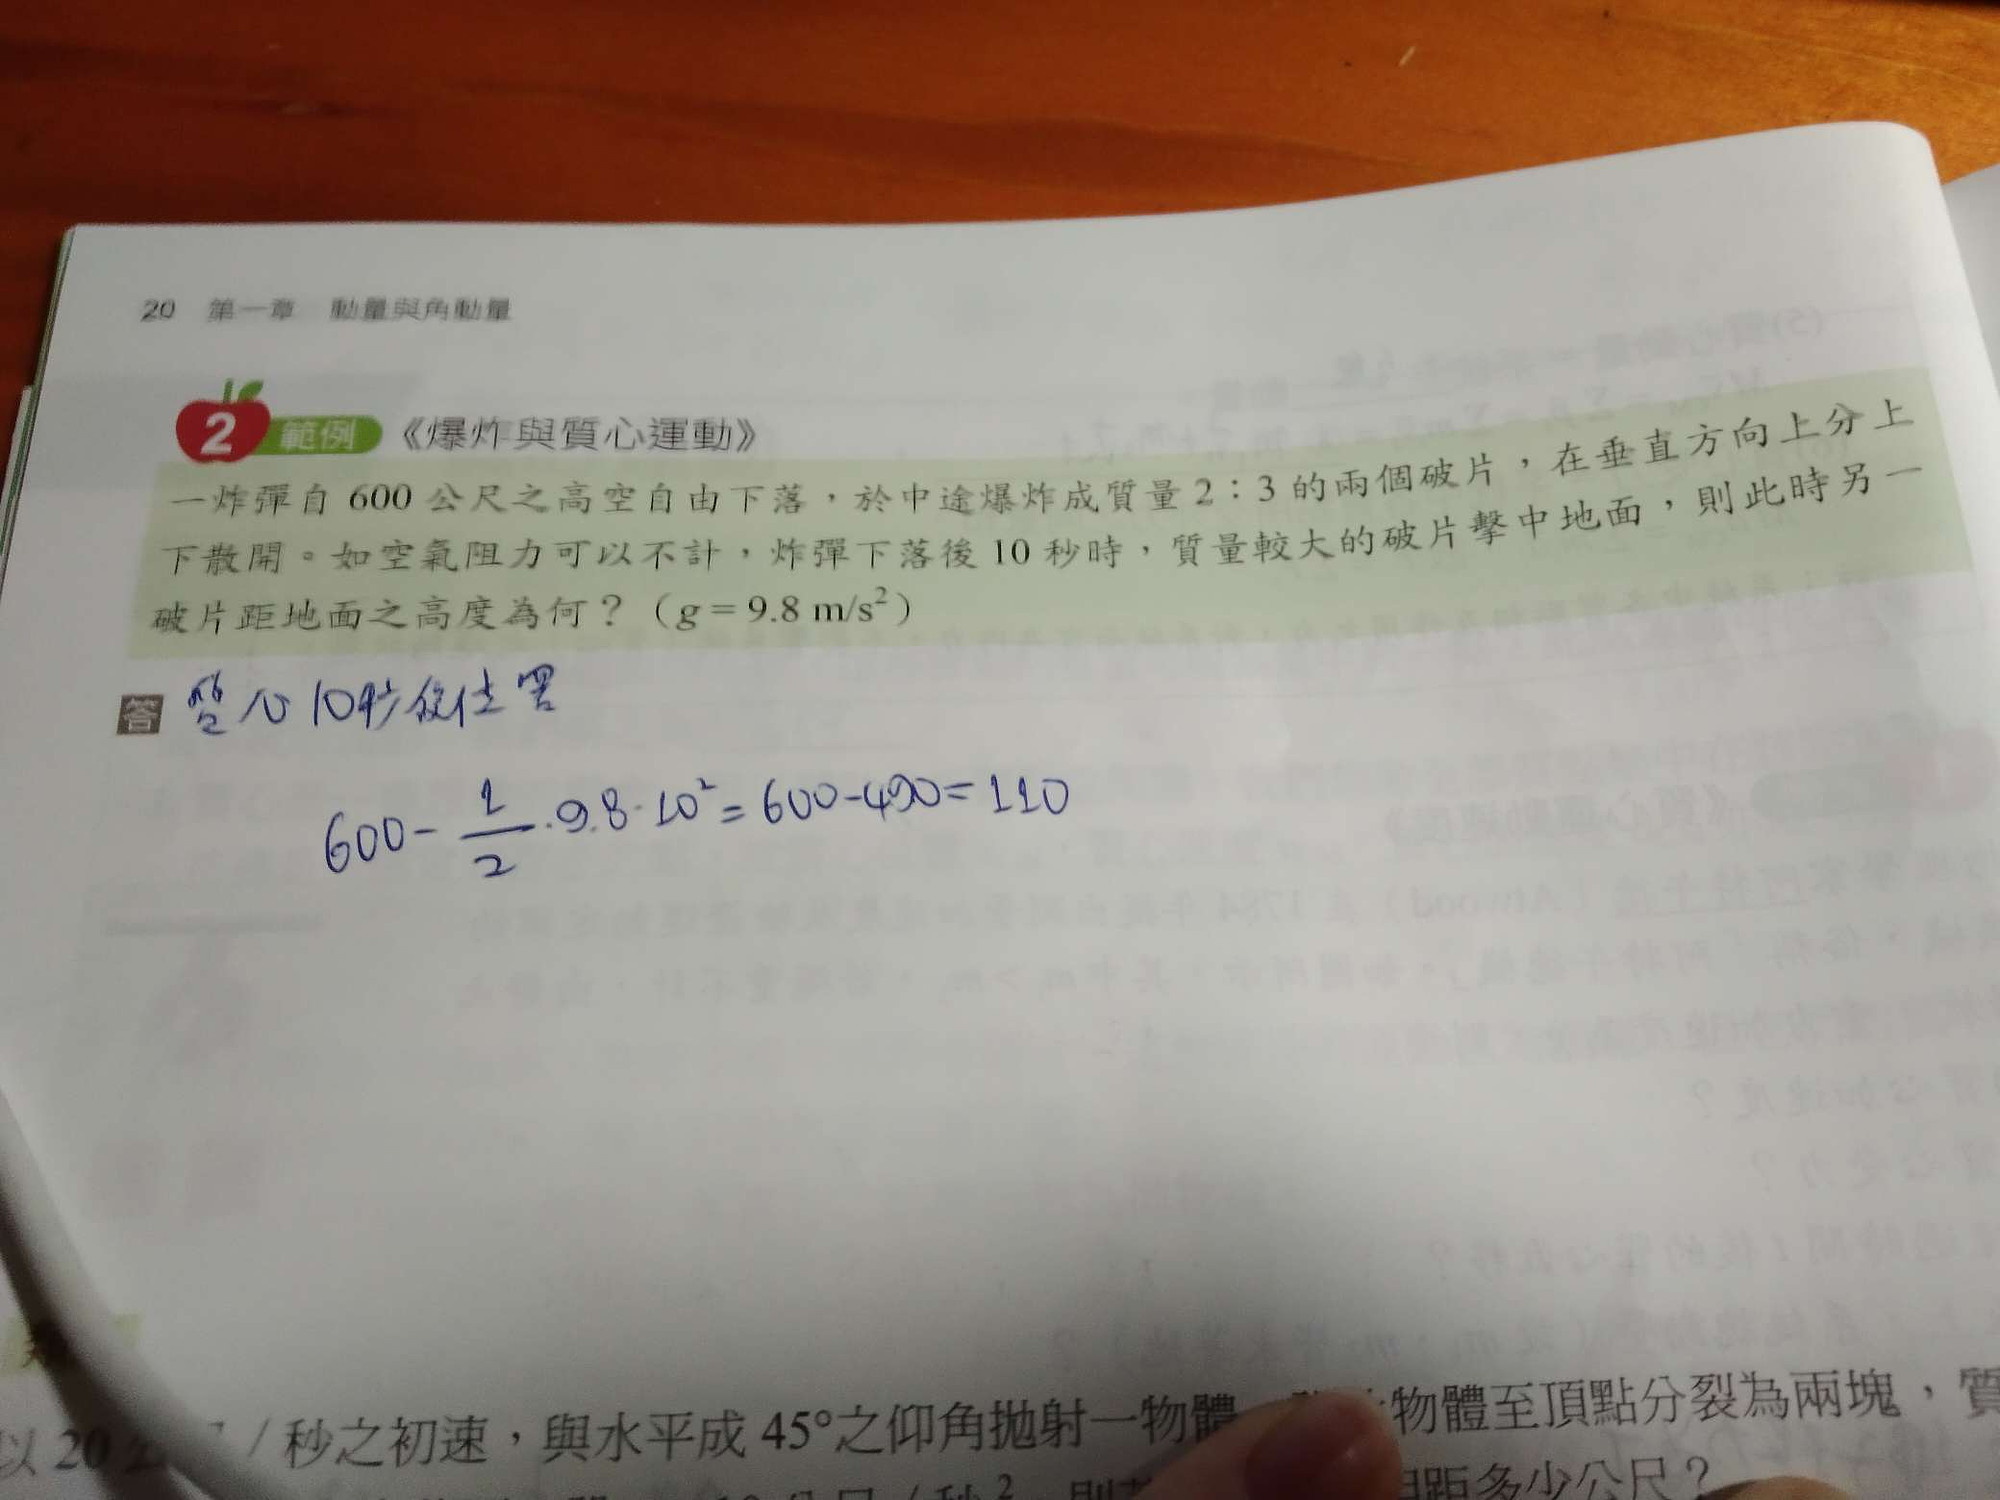 20 第一章 動量與角動量
2 範例 《爆炸與質心運動》
一炸彈自 600 公尺之高空自由下落，於中途爆炸成質量 2：3 的兩個破片，在垂直方向上分上
下散開。如空氣阻力可以不計，炸彈下落後 10 秒時，質量較大的破片擊中地面，則此時另一
破片距地面之高度為何？（g = 9.8 m/s²）
答 質心10秒後位置
600 - 1/2 · 9.8 · 10² = 600 - 490 = 110
以 20 / 秒之初速，與水平成 45°之仰角拋射一物體 物體至頂點分裂為兩塊，質
秒² 相距多少公尺？